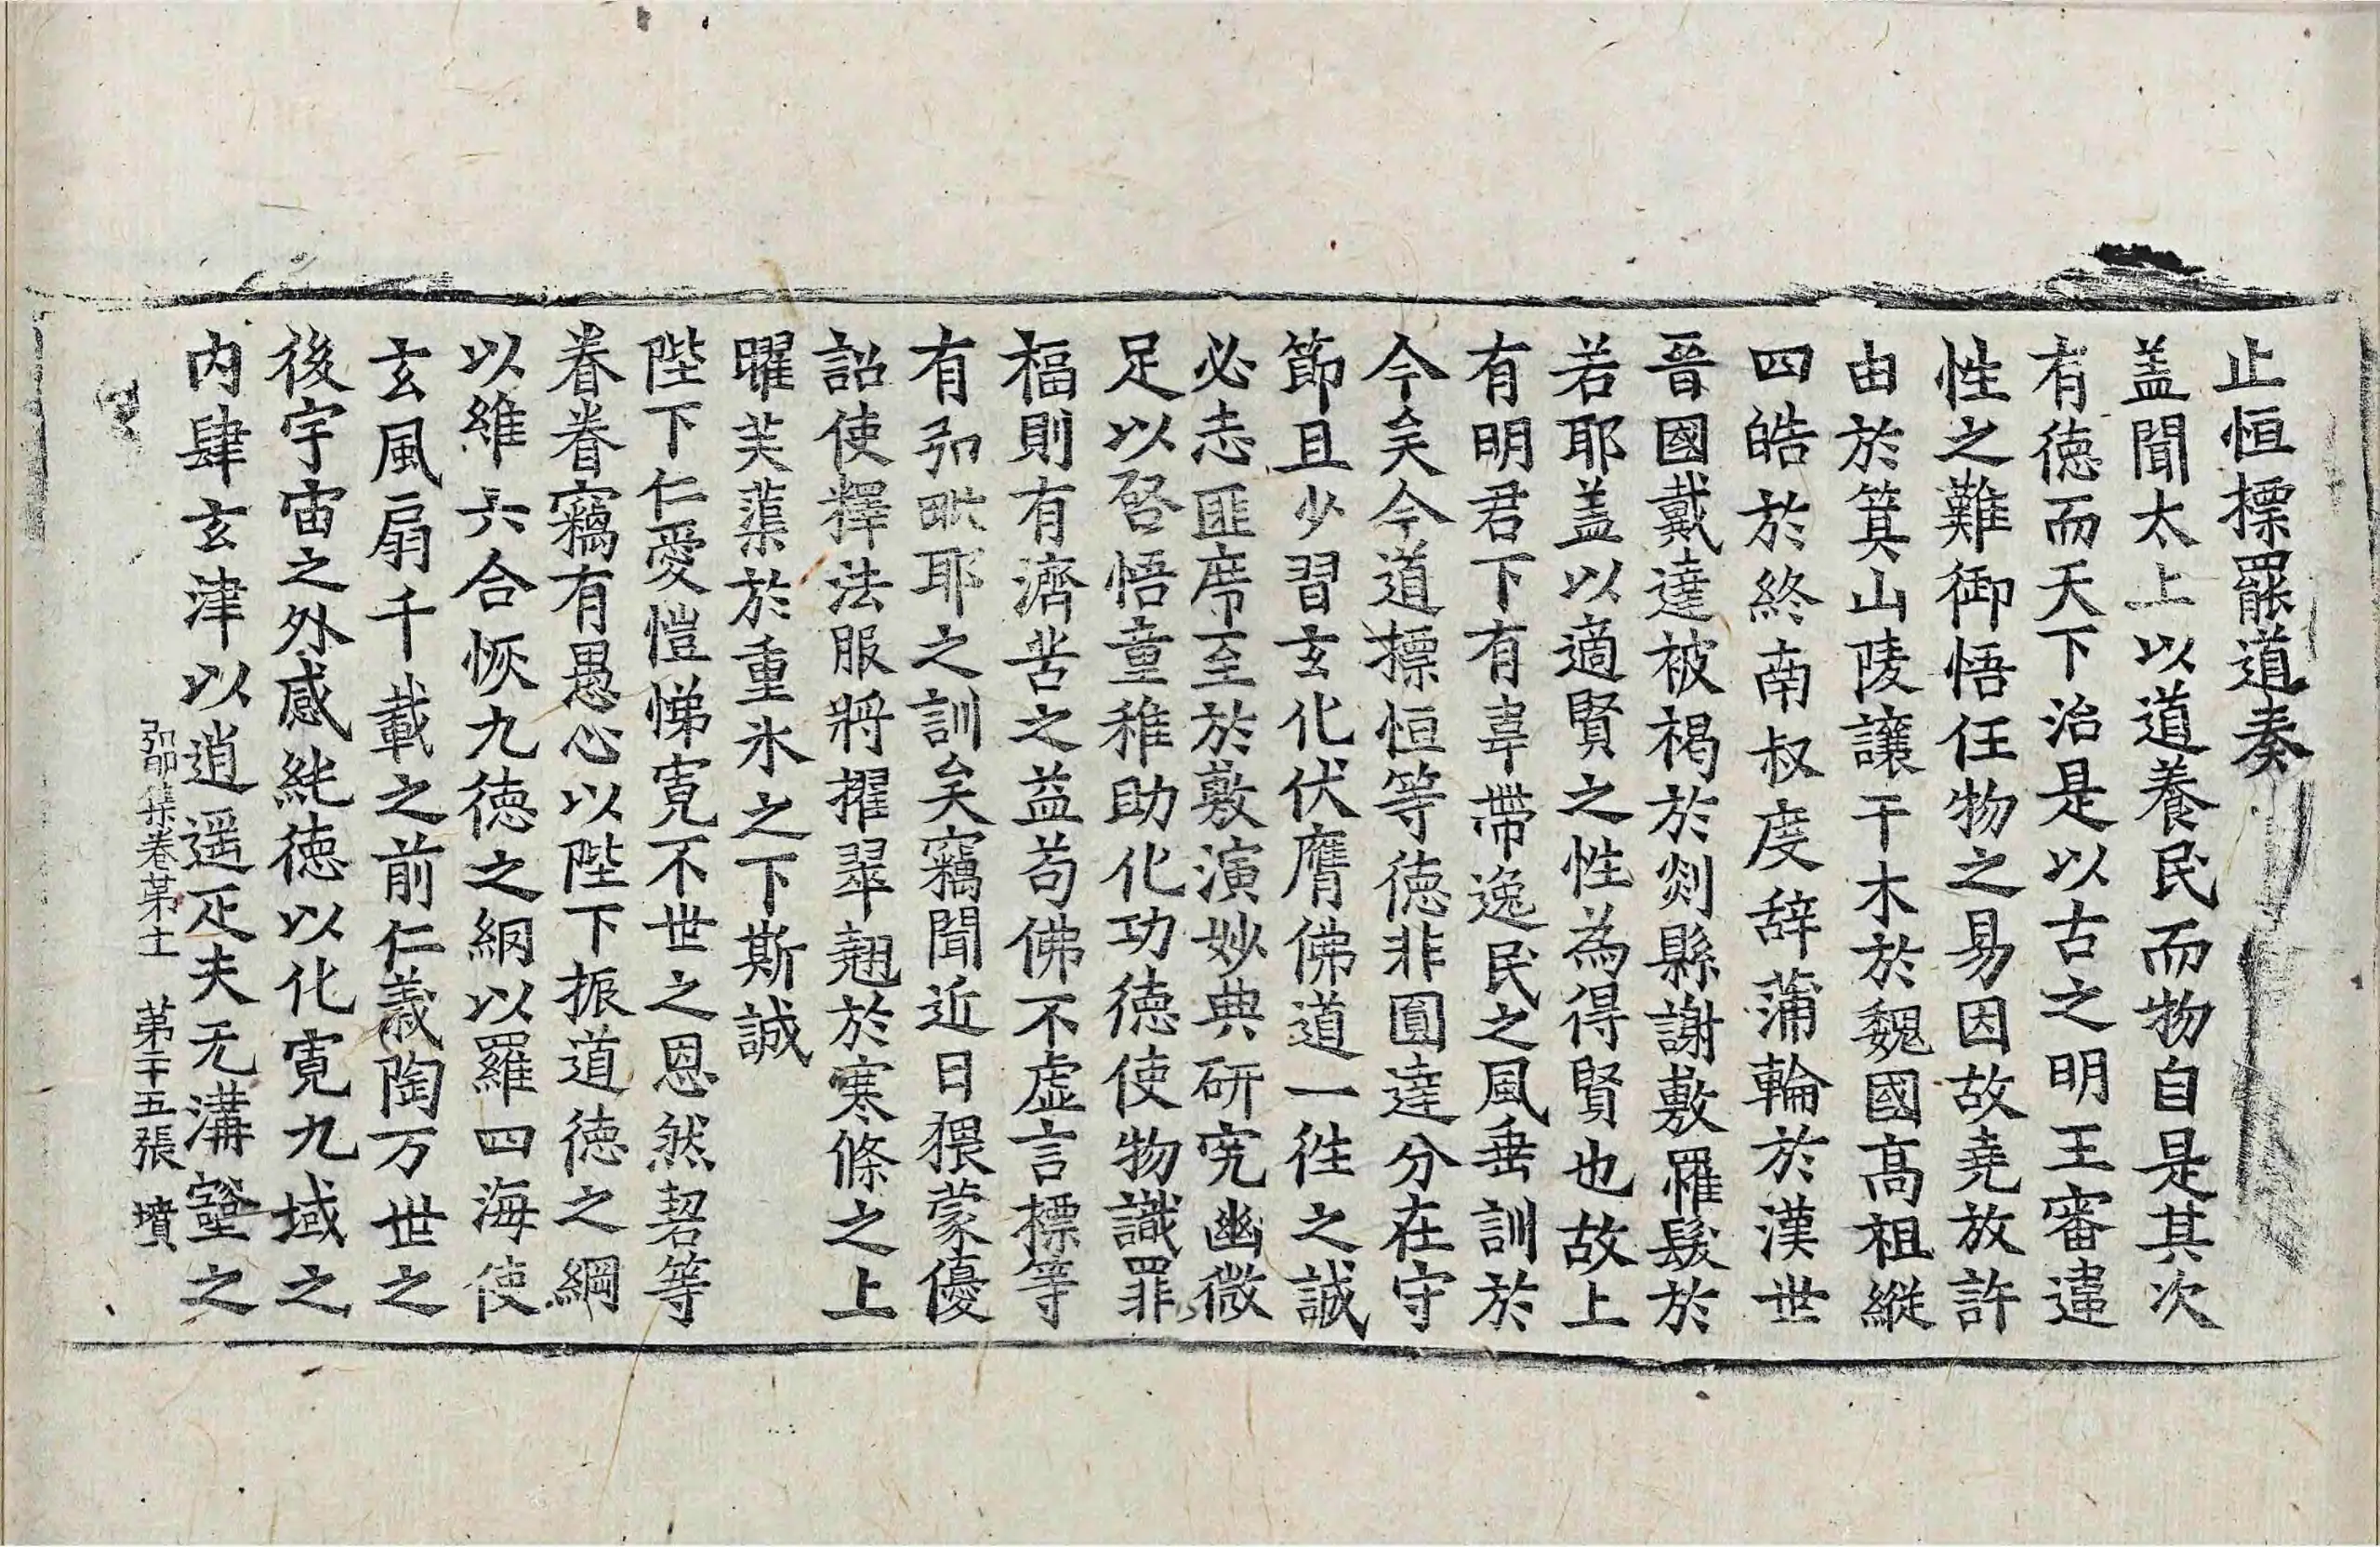 止恒摽罷道奏
盖聞太上以道養民而物自是其次
有德而天下治是以古之明王審違
性之難御悟任物之易因故堯放許
由於箕山陵讓干木於魏國高祖縱
四皓於終南叔度辞蒲輪於漢世
晉國戴逵被褐於剡縣謝敷罹髮於
若耶盖以適賢之性為得賢也故上
有明君下有韋帶逸民之風垂訓於
今矣今道摽恒等德非圓達分在守
節且少習玄化伏膺佛道一徃之誠
必志匪席至於敷演妙典研究幽微
足以啓悟童稚助化功德使物識罪
福則有濟苦之益苟佛不虛言摽等
有弘毗耶之訓矣竊聞近日猥蒙優
詔使釋法服將擢翠翹於寒條之上
曜芙蕖於重氷之下斯誠
陛下仁愛愷悌寬不世之恩然䂮等
眷眷竊有愚心以陛下振道德之綱
以維六合恢九德之網以羅四海使
玄風扇千載之前仁義陶万世之
後宇宙之外感純德以化寬九域之
内肆玄津以逍遥疋夫无溝壑之
弘明集卷苐十一 苐二十五張 墳